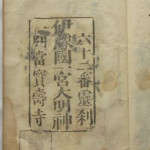 六十二番靈刹
伊豫國一宮大明神
別當寳壽寺